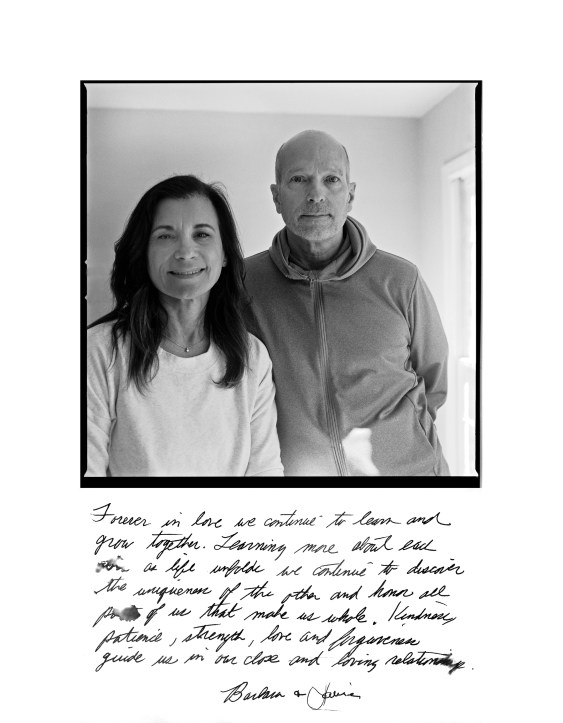 Forever in love we continue to learn and
grow together. Learning more about each
as life unfolds we continue to discover
the uniqueness of the other and honor all
of us that make us whole. Kindness,
patience, strength, love and forgiveness
guide us in our close and loving relationship.
Barbara &